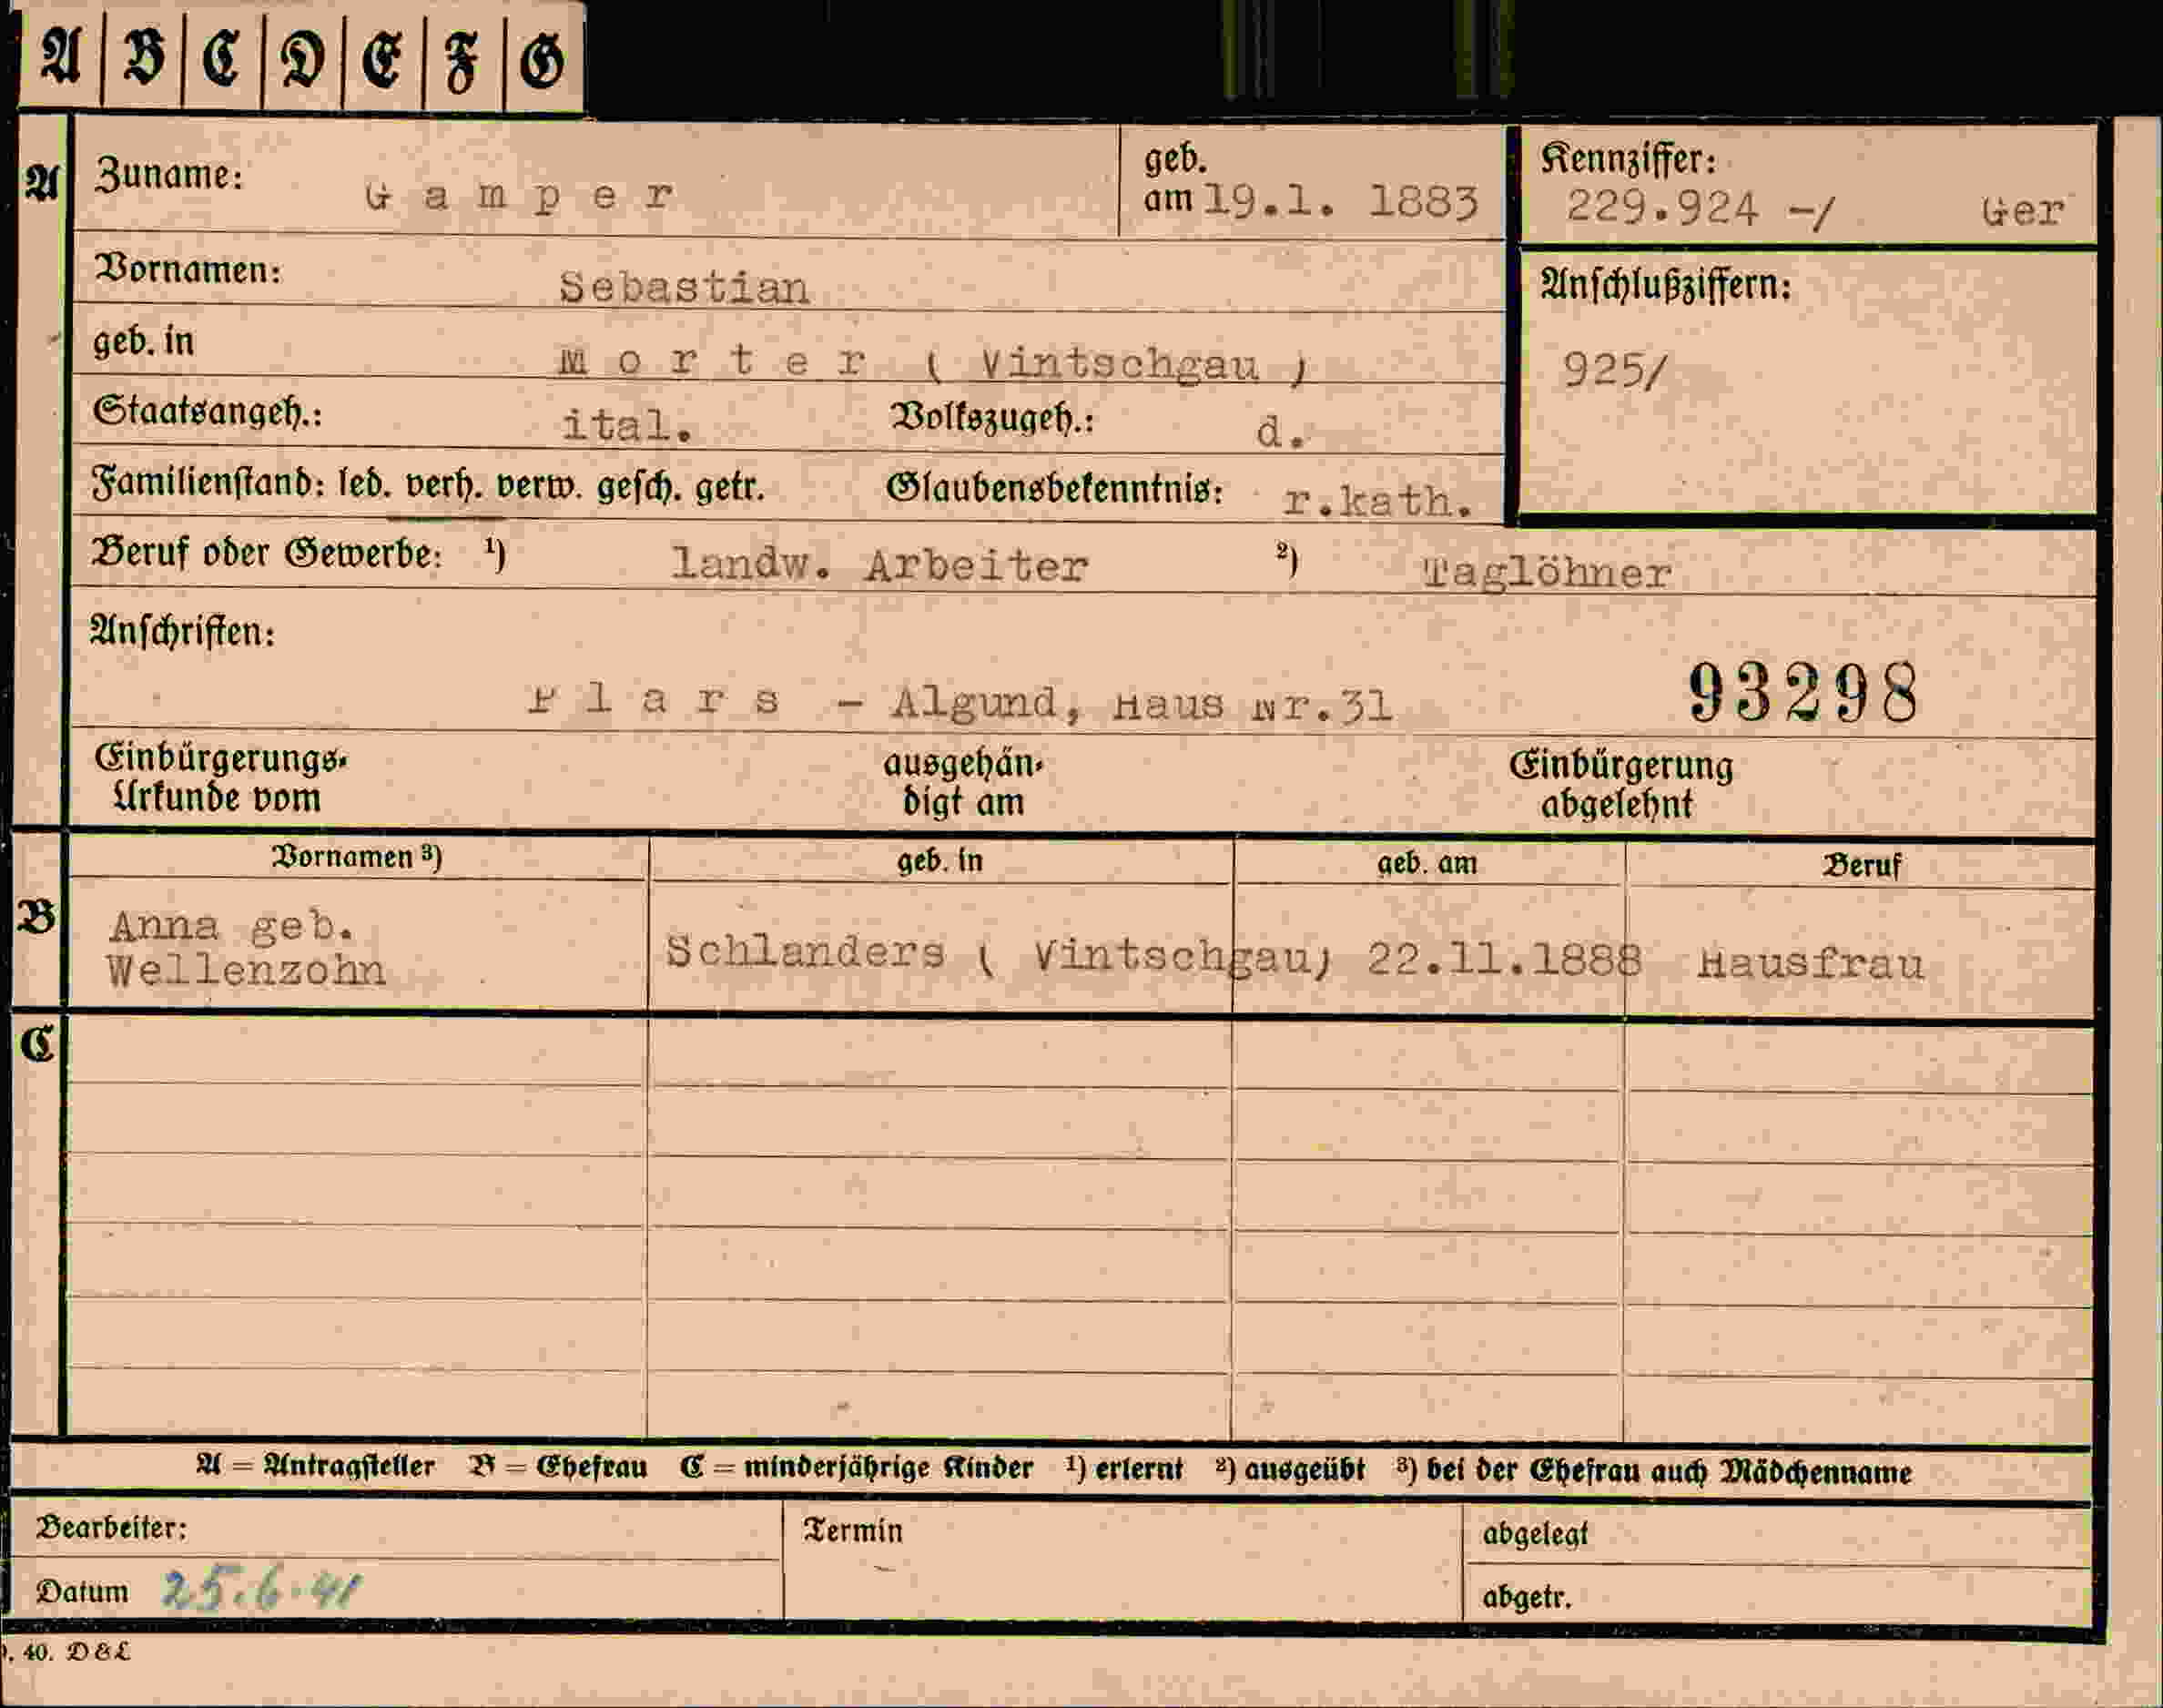 A | B | C | D | E | F | G
A
Zuname: Gamper geb. am 19.1. 1883
Kennziffer: 229.924 -/ Ger
Vornamen: Sebastian
Anschlußziffern:
925/
geb. in Morter ( Vintschgau )
Staatsangeh.: ital. Volkszugeh.: d.
Familienstand: led. verh. verw. gesch. getr. Glaubensbekenntnis: r.kath.
Beruf oder Gewerbe: ¹) landw. Arbeiter ²) Taglöhner
Anschriften:
Plars - Algund, Haus Nr.31 93298
Einbürgerungs- ausgehän- Einbürgerung
Urkunde vom digt am abgelehnt
Vornamen ³) geb. in geb. am Beruf
B
Anna geb.
Wellenzohn Schlanders ( Vintschgau) 22.11.1888 Hausfrau
C
A = Antragsteller B = Ehefrau C = minderjährige Kinder ¹) erlernt ²) ausgeübt ³) bei der Ehefrau auch Mädchenname
Bearbeiter: Termin abgelegt
Datum 25.6.41 abgetr.
. 40. D&L